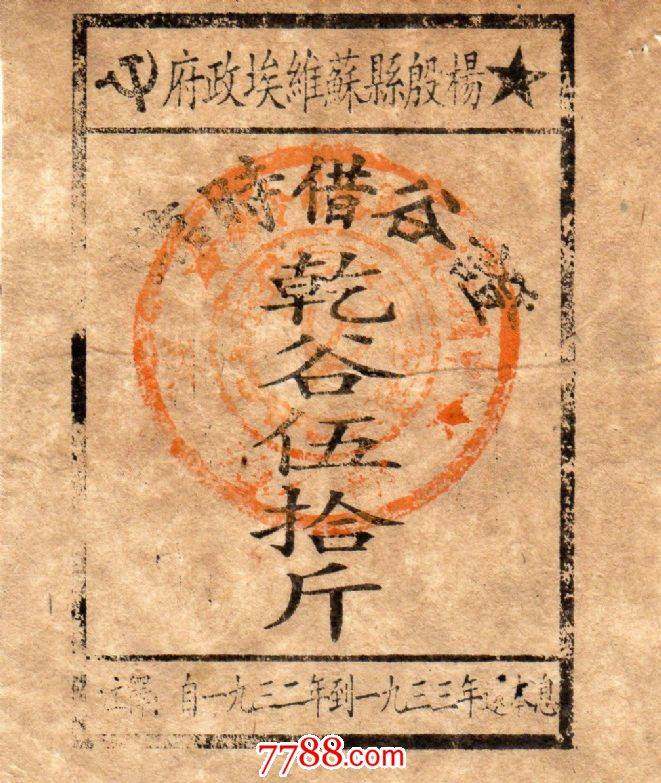 楊殷縣蘇維埃政府
時借谷證
乾谷伍拾斤
自一九三二年到一九三三年还本息
7788.com